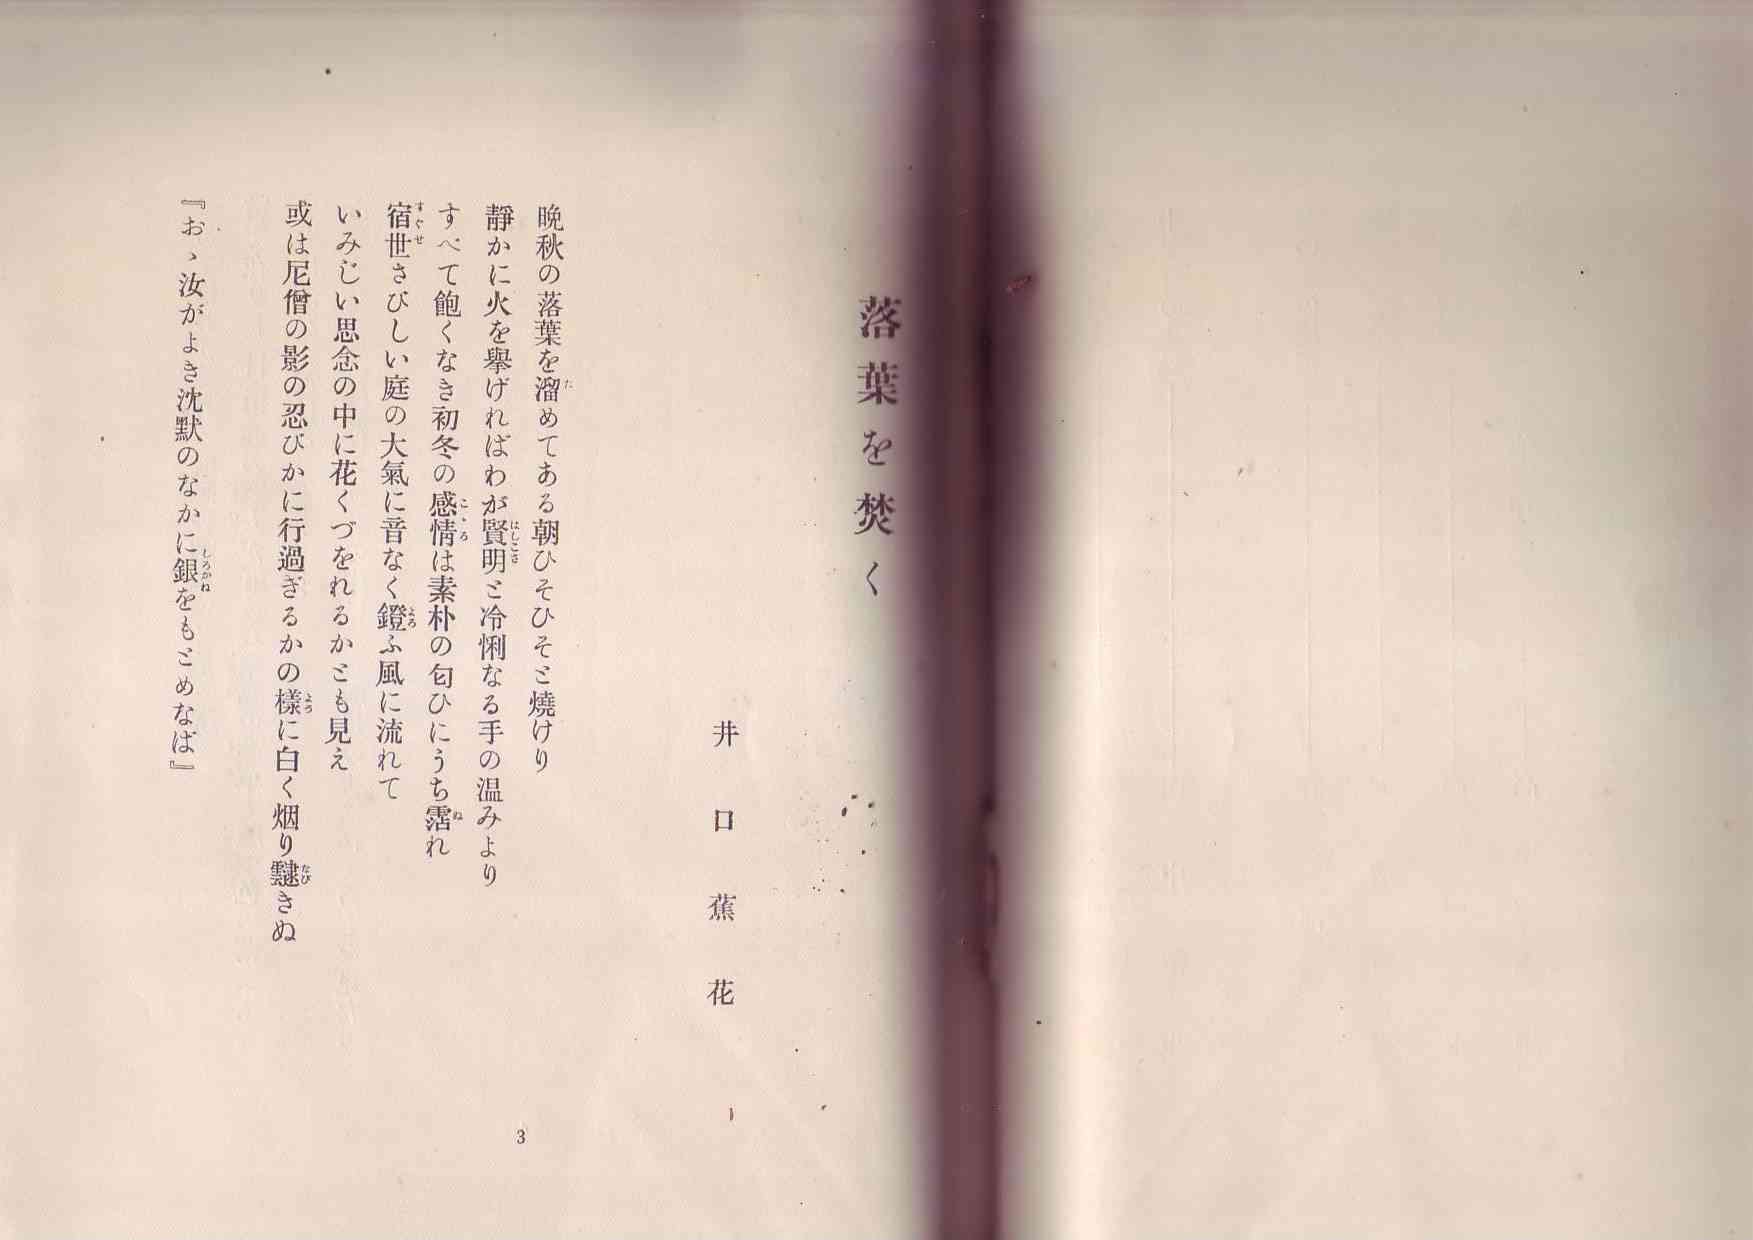 落葉を焚く
井口蕉花
晩秋の落葉を溜めてある朝ひそひそと燒けり
靜かに火を擧げればわが賢明と冷悧なる手の温みより
すべて飽くなき初冬の感情は素朴の匂ひにうち霑れ
宿世さびしい庭の大氣に音なく鐙ふ風に流れて
いみじい思念の中に花くづをれるかとも見え
或は尼僧の影の忍びかに行過ぎるかの樣に白く烟り靆きぬ
『おゝ汝がよき沈默のなかに銀をもとめなば』
3